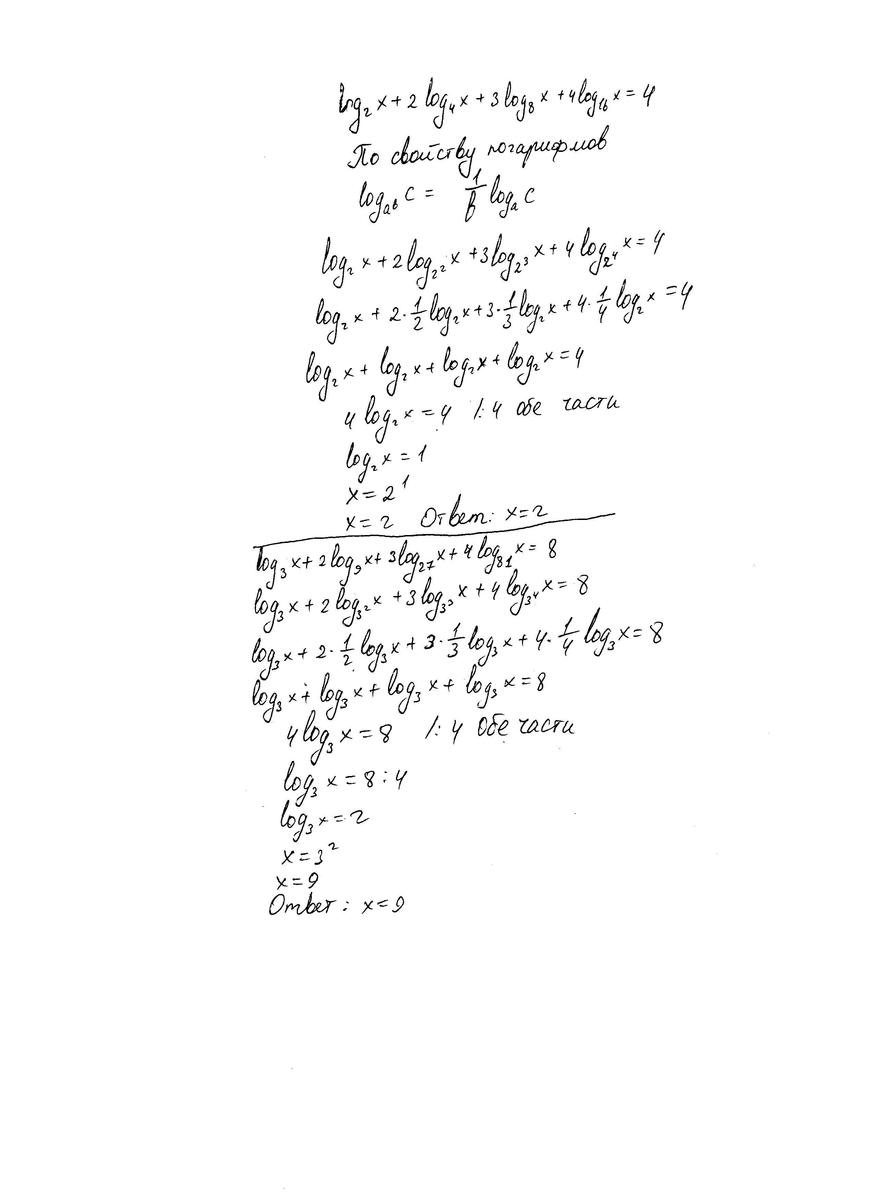 log₂ x + 2 log₄ x + 3 log₈ x + 4 log₁₆ x = 4
По свойству логарифмов
log_{a^b} c = 1/b log_a c
log₂ x + 2 log_{2²} x + 3 log_{2³} x + 4 log_{2⁴} x = 4
log₂ x + 2 · 1/2 log₂ x + 3 · 1/3 log₂ x + 4 · 1/4 log₂ x = 4
log₂ x + log₂ x + log₂ x + log₂ x = 4
4 log₂ x = 4 /: 4 обе части
log₂ x = 1
x = 2¹
x = 2 Ответ: x = 2
log₃ x + 2 log₉ x + 3 log₂₇ x + 4 log₈₁ x = 8
log₃ x + 2 log_{3²} x + 3 log_{3³} x + 4 log_{3⁴} x = 8
log₃ x + 2 · 1/2 log₃ x + 3 · 1/3 log₃ x + 4 · 1/4 log₃ x = 8
log₃ x + log₃ x + log₃ x + log₃ x = 8
4 log₃ x = 8 /: 4 Обе части
log₃ x = 8 : 4
log₃ x = 2
x = 3²
x = 9
Ответ: x = 9